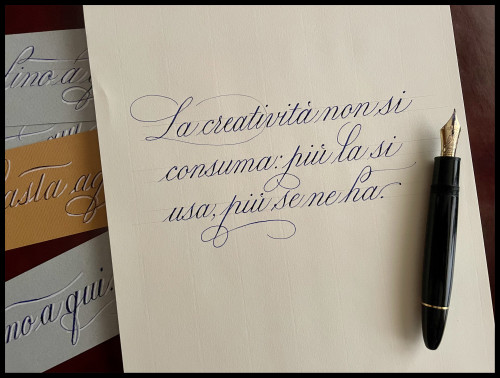 La creatività non si
consuma: più la si
usa, più se ne ha.
fino a q
qui
asta aq
no a qui.